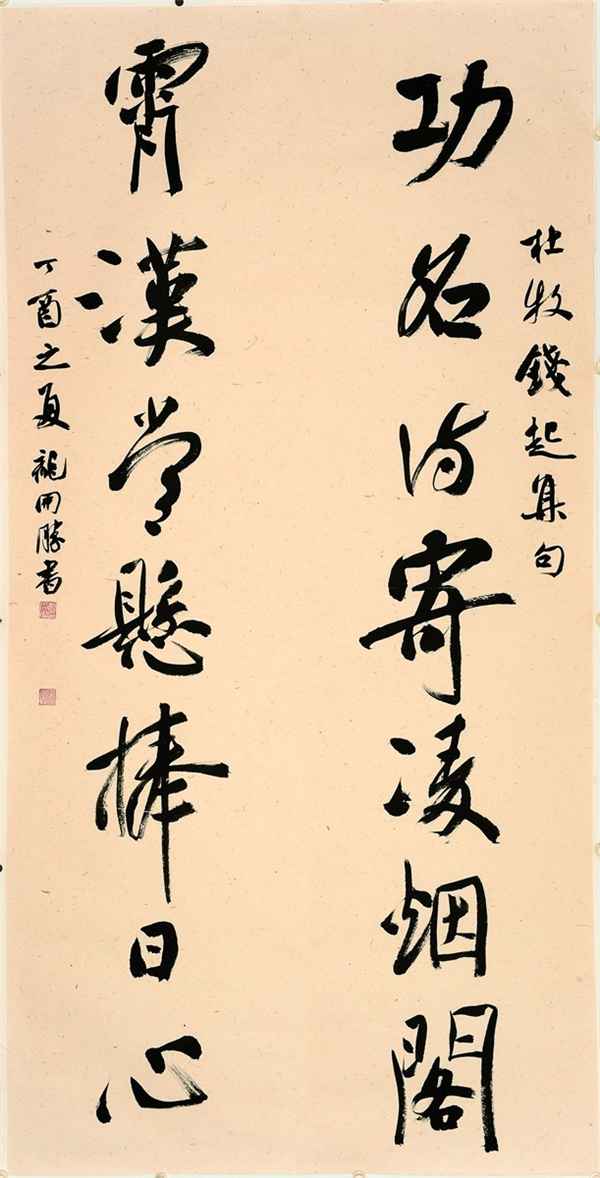 杜牧錢起集句
功名待寄凌烟閣
霄漢常懸捧日心
丁酉之夏龍開勝書